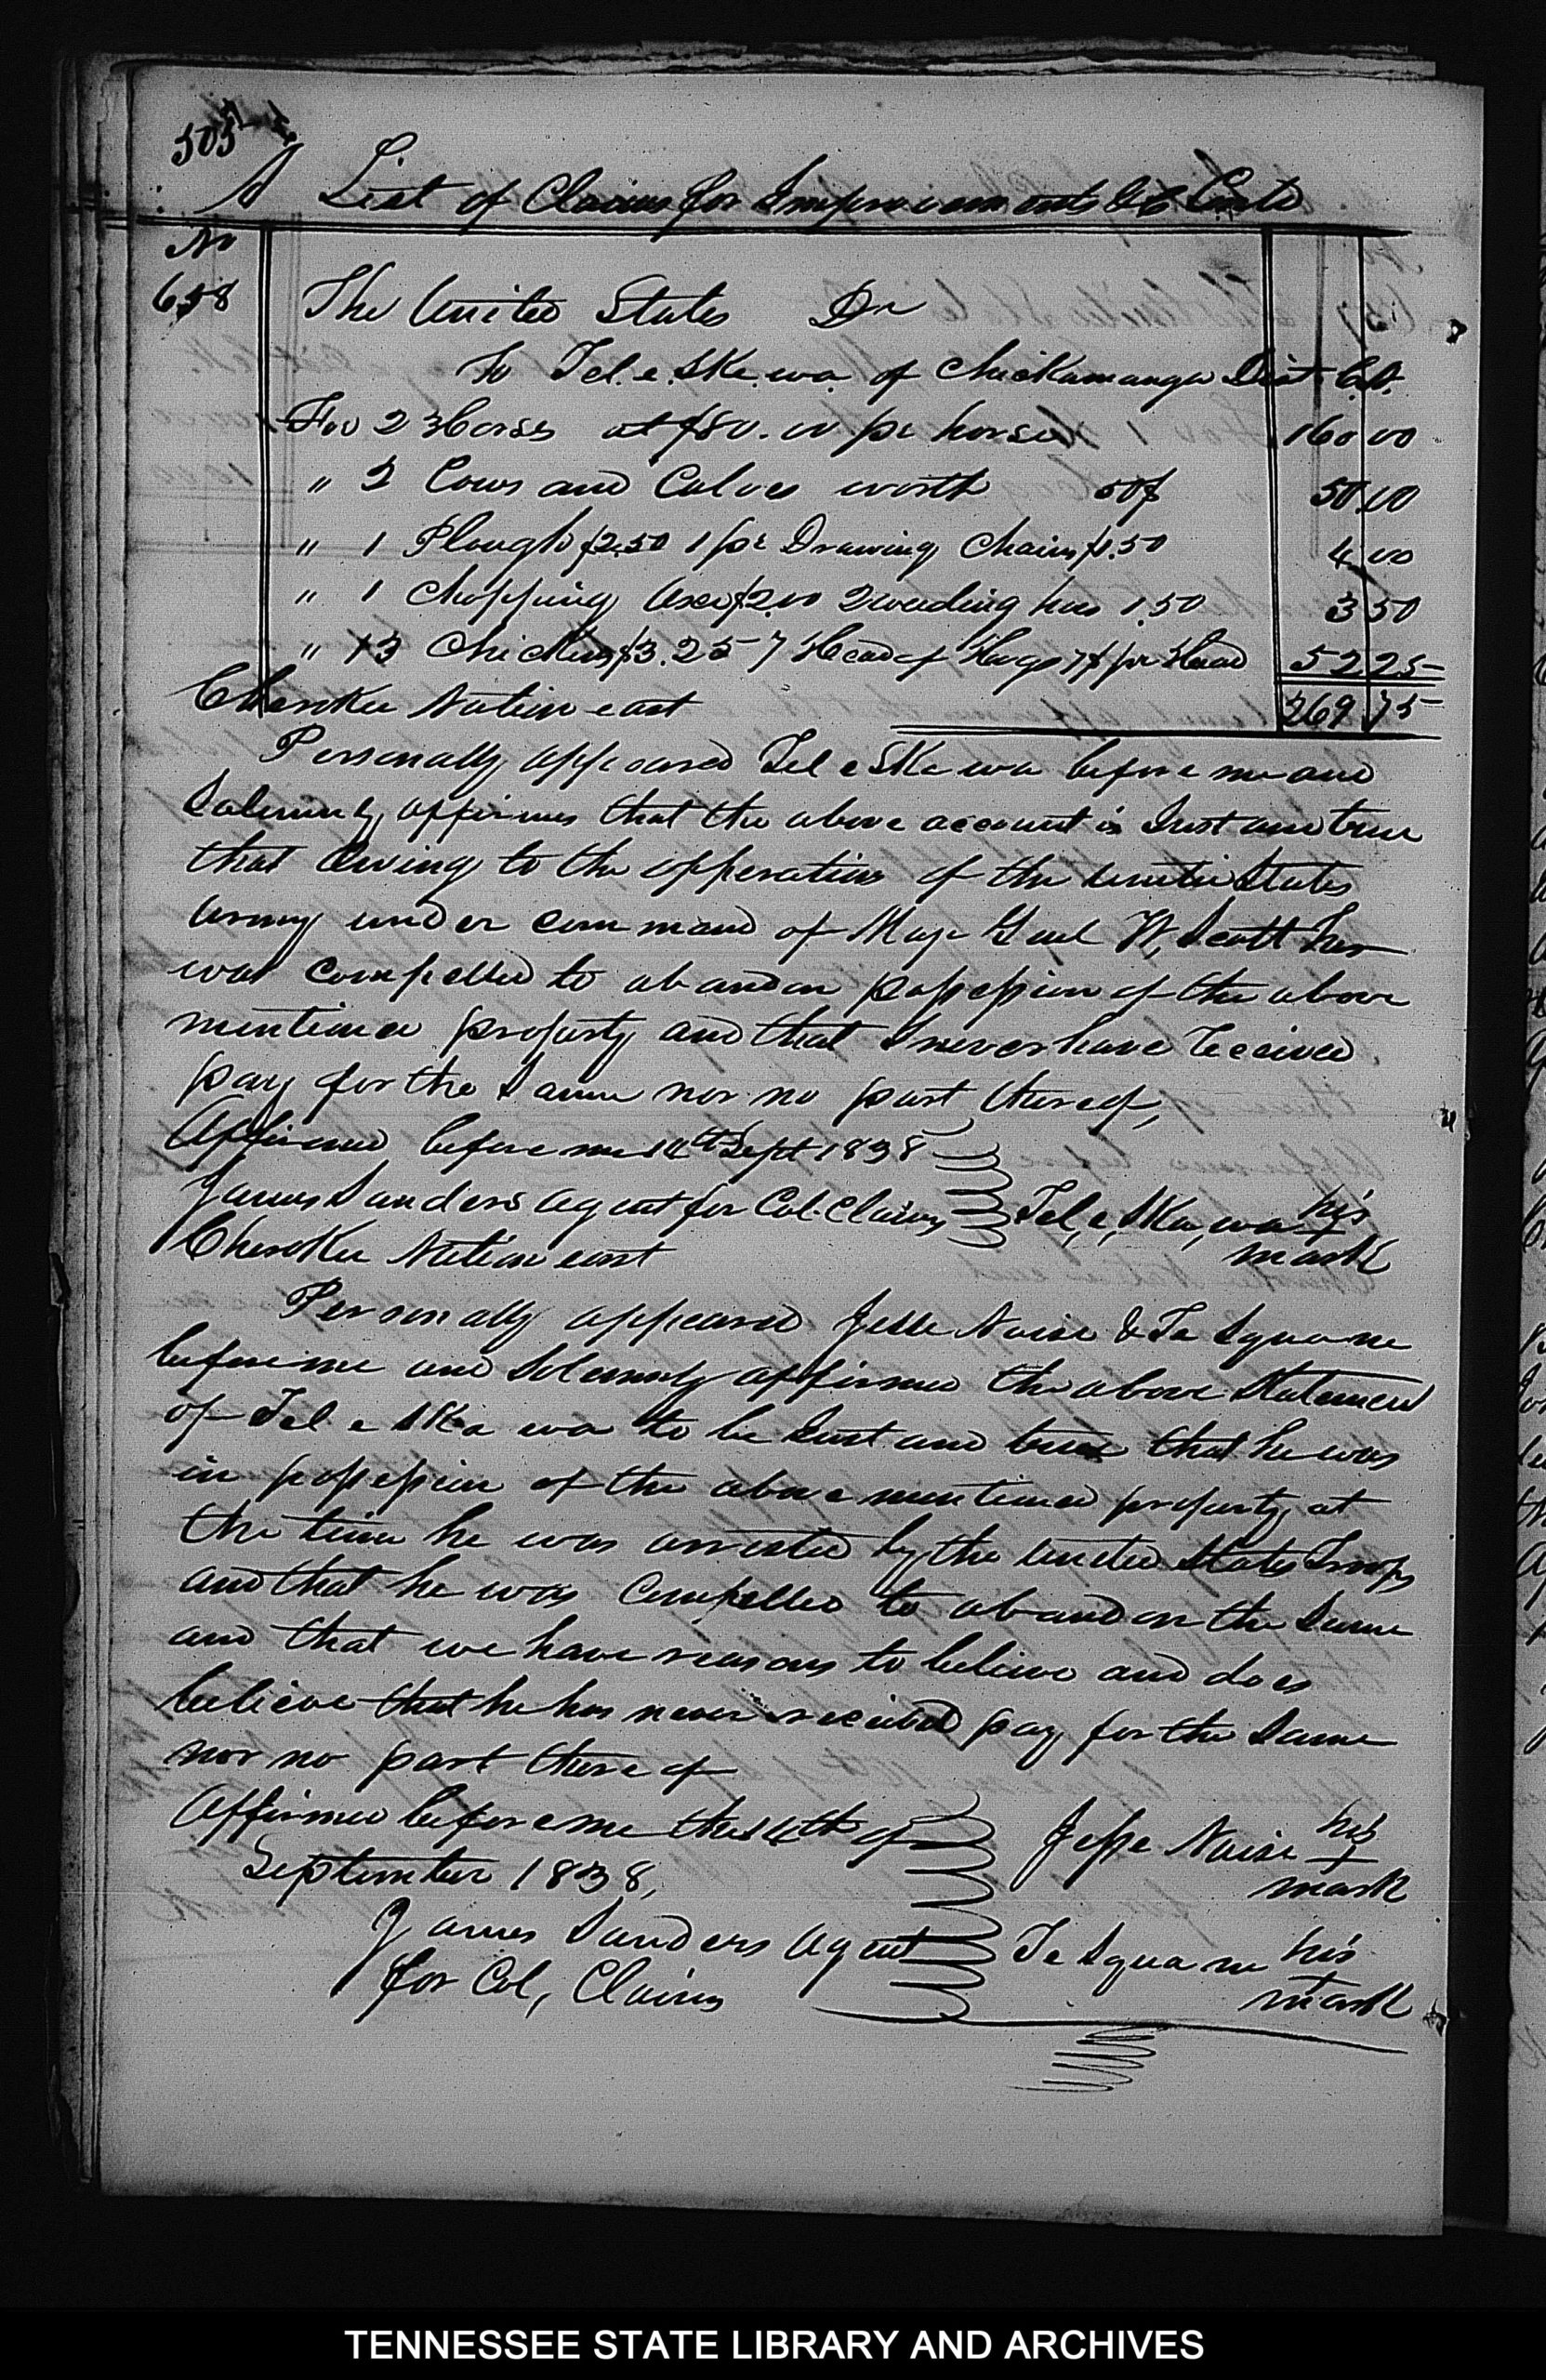 505
A List of Claims for Improvements &C Contd
No
658 The United States Dr
to Tel.e.ske.wa of Chickamauga Dist C.N.
For 2 Horses at $80.00 pr horse 160 00
" 2 Cows and Calves worth 50$ 50 00
" 1 Plough $2.50 1 pr Drawing Chains $1.50 4 00
" 1 chopping axe $2.00 2 weeding hoes 1.50 3 50
" 13 Chickens $3.25 7 Head of Hogs 7$ pr Head 52 25
Cherokee Nation east 269 75
Personally appeared Tel e Ske wa before me and
Solemnly affirmes that the above account is Just and true
that owing to the opperation of the United States
army under command of Maj Genl W, Scott
was compelled to abandon possession of the above
mentioned property and that I never have Received
pay for the Same nor no part thereof,
Affirmed before me 14th Sept 1838
James Sanders agent for Col. Claims Tel,e,Ska,wa his
Cherokee Nation east mark
Personally appeared Jesse Noise & Te squa ne
before me and Solemnly affirmed the above Statement
of Tel e Ska wa to be Just and true that he was
in possession of the above mentioned property at
the time he was arrested by the United States Troops
and that he was Compelled to abandon the Same
and that we have reasons to believe and does
believe that he has never received pay for the Same
nor no part there of
Affirmed before me this 14th of Jesse Noise his
September 1838, mark
James Sanders Agent Te squa ne his
for Col, Claims mark
TENNESSEE STATE LIBRARY AND ARCHIVES